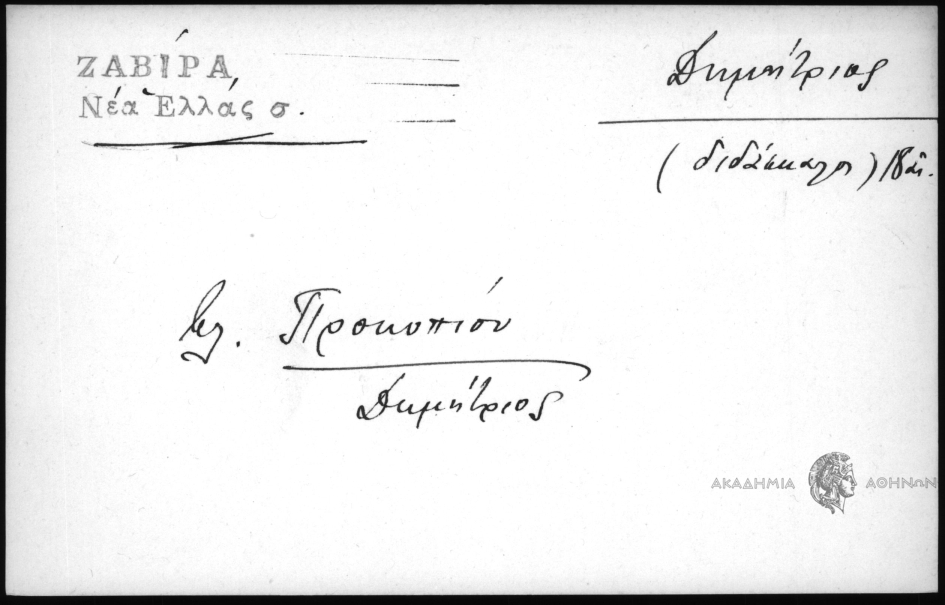 ΖΑΒΙΡΑ,
Νέα Ἑλλάς σ.
Δημήτριος
(διδάσκαλος) 18 αἰ.
βλ. Προκοπίου
Δημήτριος
ΑΚΑΔΗΜΙΑ ΑΘΗΝΩΝ